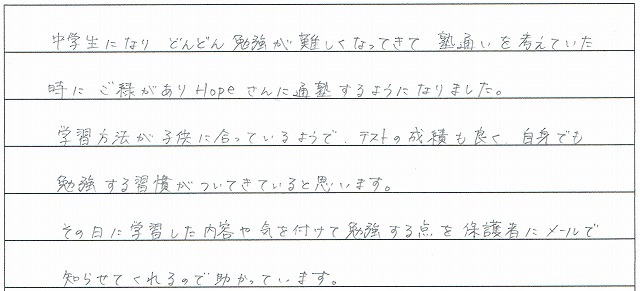 中学生になり どんどん 勉強が 難しくなってきて 塾通いを考えていた
時に ご縁がありHopeさんに通塾するようになりました。
学習方法が子供に合っているようで、テストの成績も良く、自身でも
勉強する習慣がついてきていると思います。
その日に学習した内容や気を付けて勉強する点を保護者にメールで
知らせてくれるので助かっています。